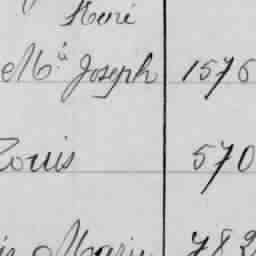 René
Mⁱᵃ Joseph 1576
Louis 570
Marie 782